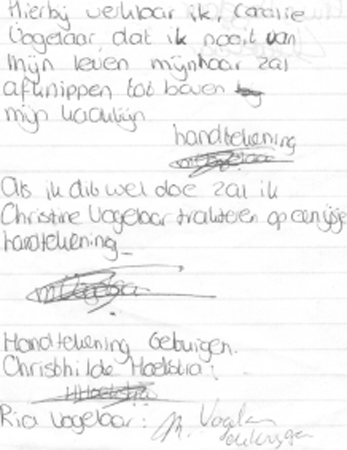 Hierbij verklaar ik, Coralie
Vogelaar, dat ik nooit van
mijn leven mijnhaar zal
afknippen tot boven
mijn kaaklijn
handtekening
Als ik dit wel doe zal ik
Christine Vogelaar trakteren op een ijsje
handtekening
Handtekening Getuigen.
Christhilde Hoekstra:
HHoekstra
Ria Vogelaar: M. Vogelaar